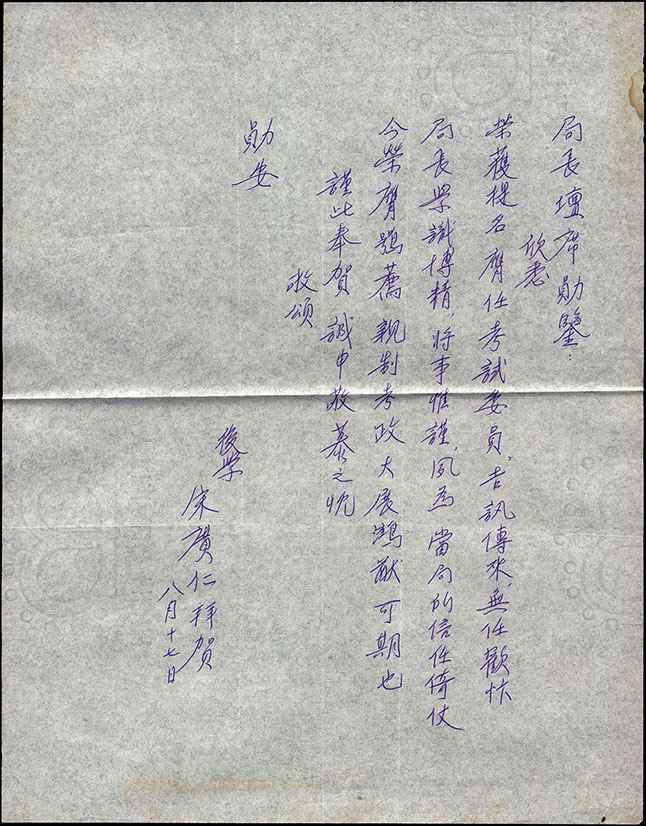 局長壇席勛鑒：
欣悉
榮獲提名膺任考試委員，吉訊傳來，無任歡忭
局長學識博精，將事惟謹，夙為 當局所信任倚仗
今榮膺鶚薦 親制考政 大展鴻猷可期也
謹此奉賀 誠申敬慕之忱
敬頌
勛安
後學
宋廣仁拜賀
八月十七日